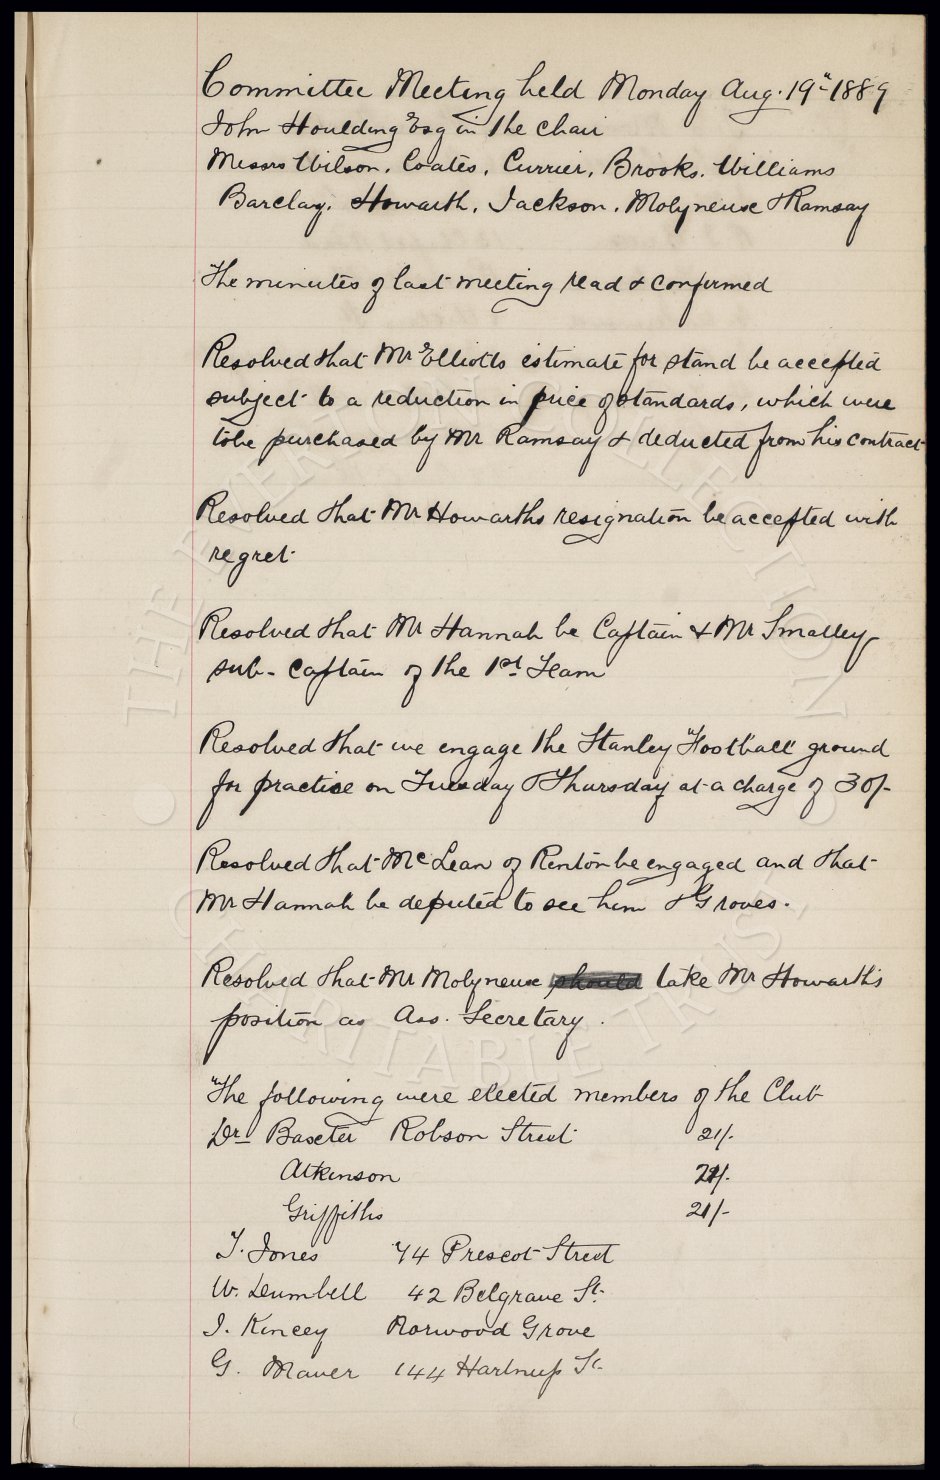 Committee Meeting held Monday Aug. 19" 1889
John Houlding Esq in the chair
Messrs Wilson, Coates, Currier, Brooks, Williams
Barclay, Howarth, Jackson, Molyneux & Ramsay
The minutes of last meeting read & confirmed
Resolved that Mr Elliotts estimate for stand be accepted
subject to a reduction in price of standards, which were
to be purchased by Mr Ramsay & deducted from his contract
Resolved that Mr Howarths resignation be accepted with
regret
Resolved that Mr Hannah be Captain & Mr Smalley
sub-Captain of the 1st Team
Resolved that we engage the Stanley "Football" ground
for practice on Tuesday & Thursday at a charge of 30/-
Resolved that McLean of Renton be engaged and that
Mr Hannah be deputed to see him & Groves.
Resolved that Mr Molyneux should take Mr Howarth's
position as Ass. Secretary.
The following were elected members of the Club
Dr Baxter Robson Street 21/-
Atkinson 21/-
Griffiths 21/-
T. Jones 74 Prescot Street
W. Dumbell 42 Belgrave St.
J. Kincey Norwood Grove
G. Maver 144 Hartnup St.
THE EVERTON COLLECTION
CHARITABLE TRUST